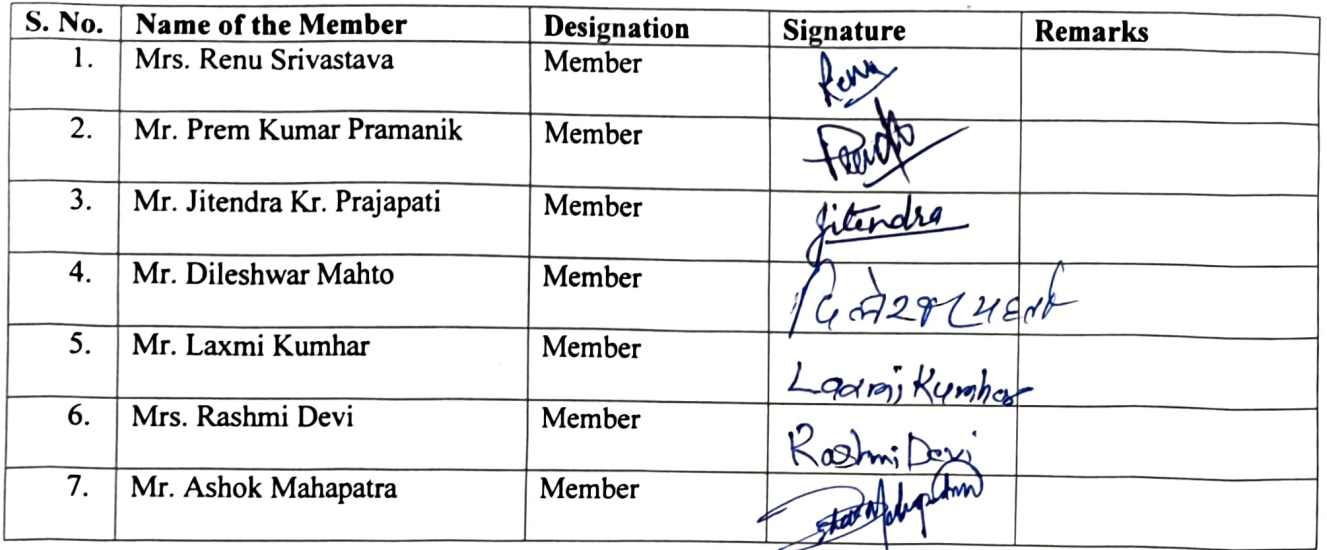 S. No. Name of the Member Designation Signature Remarks
1. Mrs. Renu Srivastava Member Renu
2. Mr. Prem Kumar Pramanik Member
3. Mr. Jitendra Kr. Prajapati Member Jitendra
4. Mr. Dileshwar Mahto Member
5. Mr. Laxmi Kumhar Member Laxmi Kumhar
6. Mrs. Rashmi Devi Member Rashmi Devi
7. Mr. Ashok Mahapatra Member